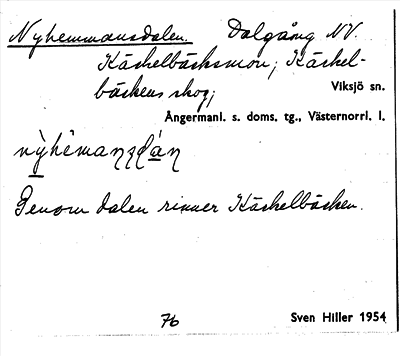 Nyhemmansdalen. Dalgång NV.
Käckelbäcksmon, Käckel-
bäckens skog,
Viksjö sn.
Ångermanl. s. doms. tg., Västernorrl. l.
Genom dalen rinner Käckelbäcken.
76
Sven Hiller 1954